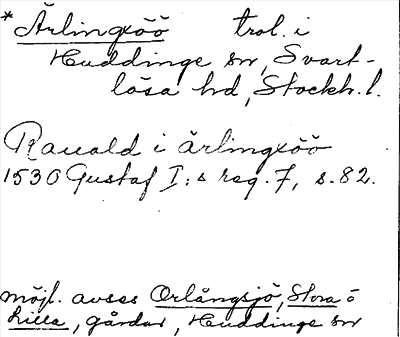 * Ärlingxöö trol. i
Huddinge sn, Svart-
lösa hd, Stockh. l.
Rauald i ärlingxöö
1530 Gustaf I:s reg. 7, s. 82.
möjl. avses Orlångsjö, Stora o
Lilla, gårdar, Huddinge sn